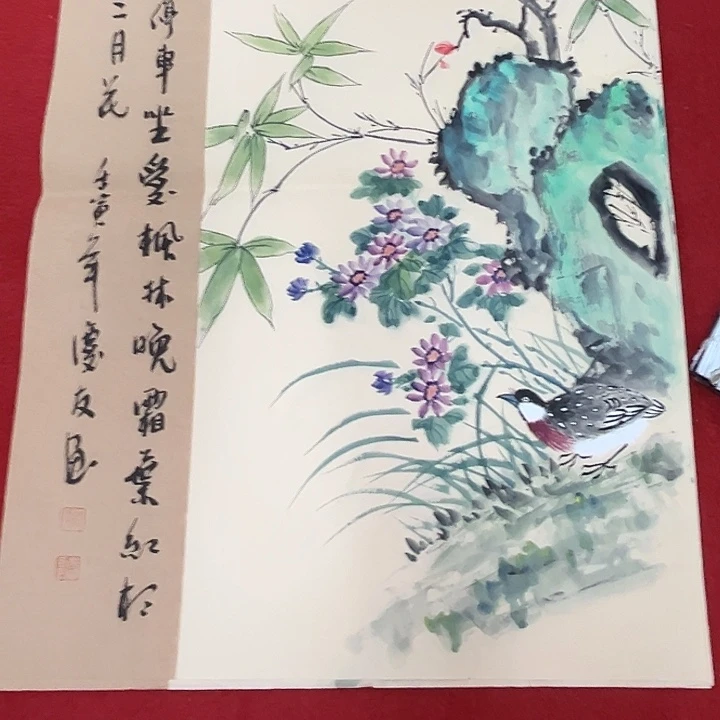 停車坐愛楓林晚霜葉紅於
二月花 壬寅年